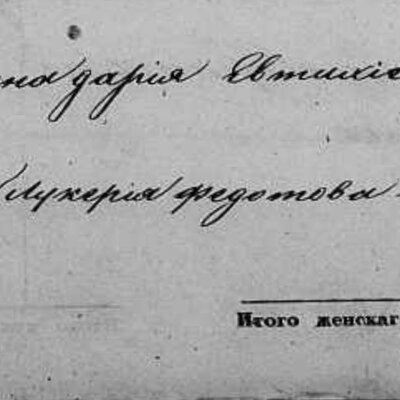 на дарія Евтихіе
Лукерія федотова
Итого женскаг